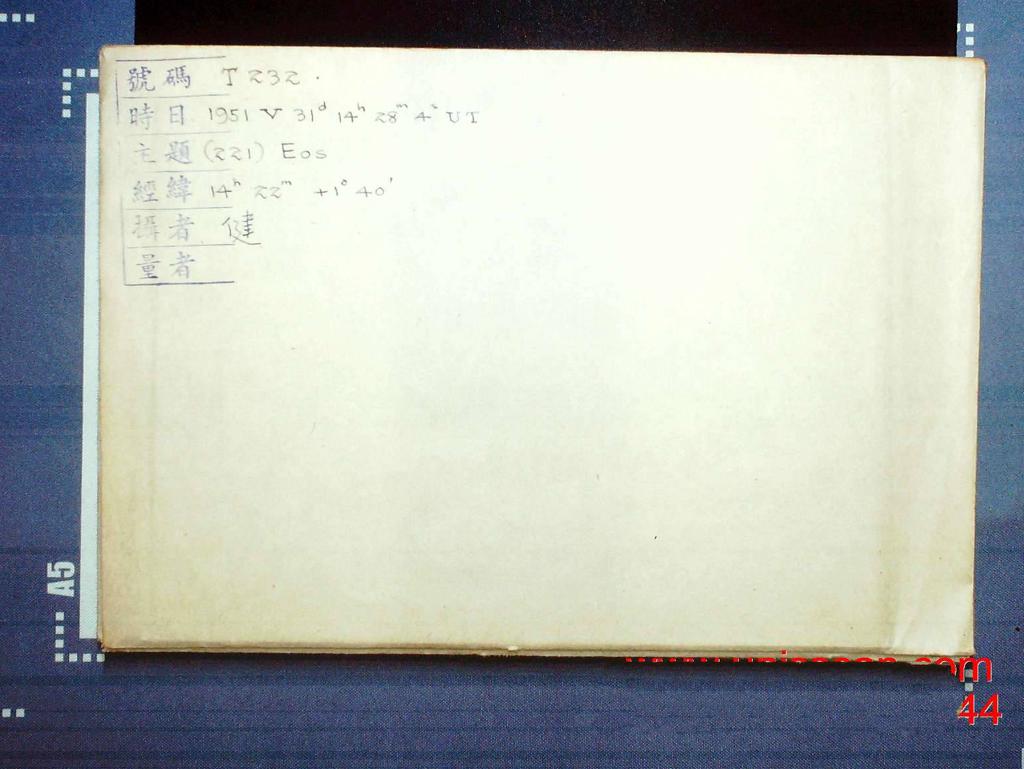 號碼 T 232.
時日 1951 V 31ᵈ 14ʰ 28ᵐ 4ˢ UT
主題 (221) Eos
經緯 14ʰ 22ᵐ +1° 40'
攝者 健
量者
A5
44